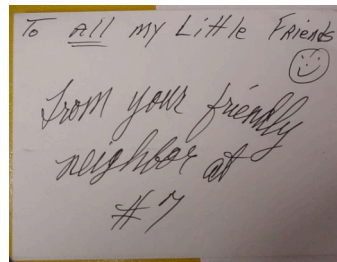 To All my Little Friends
From your friendly
neighbor at
#7